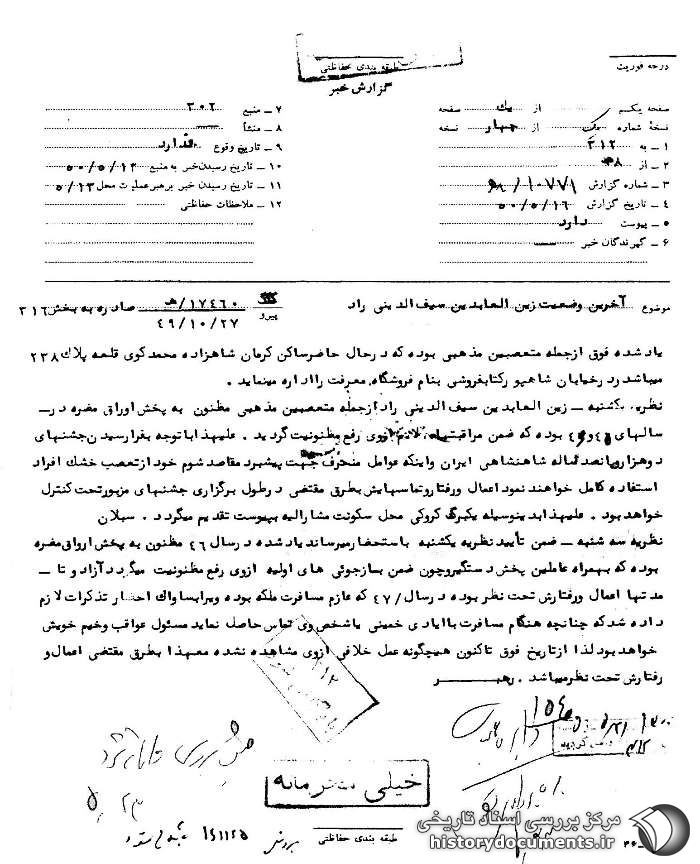 درجه فوریت
طبقه بندی حفاظتی
گزارش خبر
صفحه یکم از یک صفحه
نسخهٔ شماره یک از چهار نسخه
۱ ـ به ۳۱۲
۲ ـ از ۸ﻫ
۳ ـ شماره گزارش ۱۰۷۷۱/ﻫ۸
۴ ـ تاریخ گزارش ۵۰/۵/۱۶
۵ ـ پیوست دارد
۶ ـ گیرندگان خبر
۷ ـ منبع ۳۰۲
۸ ـ منشأ
۹ ـ تاریخ وقوع ندارد
۱۰ ـ تاریخ رسیدن خبر به منبع ۵۰/۵/۱۲
۱۱ ـ تاریخ رسیدن خبر برهبر عملیات محل ۵/۱۳
۱۲ ـ ملاحظات حفاظتی
موضوع آخرین وضعیت زین العابدین سیف الدینی راد پیرو ۱۷۴۶۰/ﻫ صادره به بخش ۳۱۶
۴۹/۱۰/۲۷
یاد شده فوق ازجمله متعصبین مذهبی بوده که درحال حاضرساکن کرمان شاهزاده محمدکوی قلعه پلاک ۲۳۸
میباشد ودرخیابان شاهپو رکتابفروشی بنام فروشگاه معرفت رااداره مینماید .
نظریه یکشنبه ـ زین العابدین سیف الدینی راد ازجمله متعصبین مذهبی مظنون به پخش اوراق مضره درـ
سالهای ۴۶و بوده که ضمن مراقبتهای لازم ازوی رفع مظنونیت گردید . علیهذا باتوجه بفرارسیدن جشنهای
دوهزار پانصد ساله شاهنشاهی ایران واینکه عوامل منحرف جهت پیشبرد مقاصد شوم خود ازتعصب خشک افراد
استفاده کامل خواهند نمود اعمال ورفتاروتماسهایش بطرق مقتضی درطول برگزاری جشنهای مزبورتحت کنترل
خواهد بود . علیهذا بدینوسیله یکبرگ کروکی محل سکونت مشارالیه بپیوست تقدیم میگردد . سبلان
نظریه سه شنبه ـ ضمن تأیید نظریه یکشنبه باستحضارمیرساند یاد شده درسال ۴۶ مظنون به پخش اوراق مضره
بوده که بهمراه عاملین پخش دستگیروچون ضمن بازجوئی های اولیه ازوی رفع مظنونیت میگردد آزاد و تا ـ
مدتها اعمال ورفتارش تحت نظر بوده و درسال /۴۷ که عازم مسافرت مکه بوده وبرابساواک احضار تذکرات لازم
داده شد که چنانچه هنگام مسافرت باایادی خمینی یاشخص وی تماس حاصل نماید مسئول عواقب وخیم خویش
خواهد بود لذا ازتاریخ فوق تاکنون هیچگونه عمل خلافی ازوی مشاهده نشده معهذا بطرق مقتضی اعمال و
رفتارش تحت نظرمیباشد . رهبر
۳۱۲
خیلی محرمانه
طبقه بندی حفاظتی
۱۴۱۱۲۵
مرکز بررسی اسناد تاریخی
historydocuments.ir